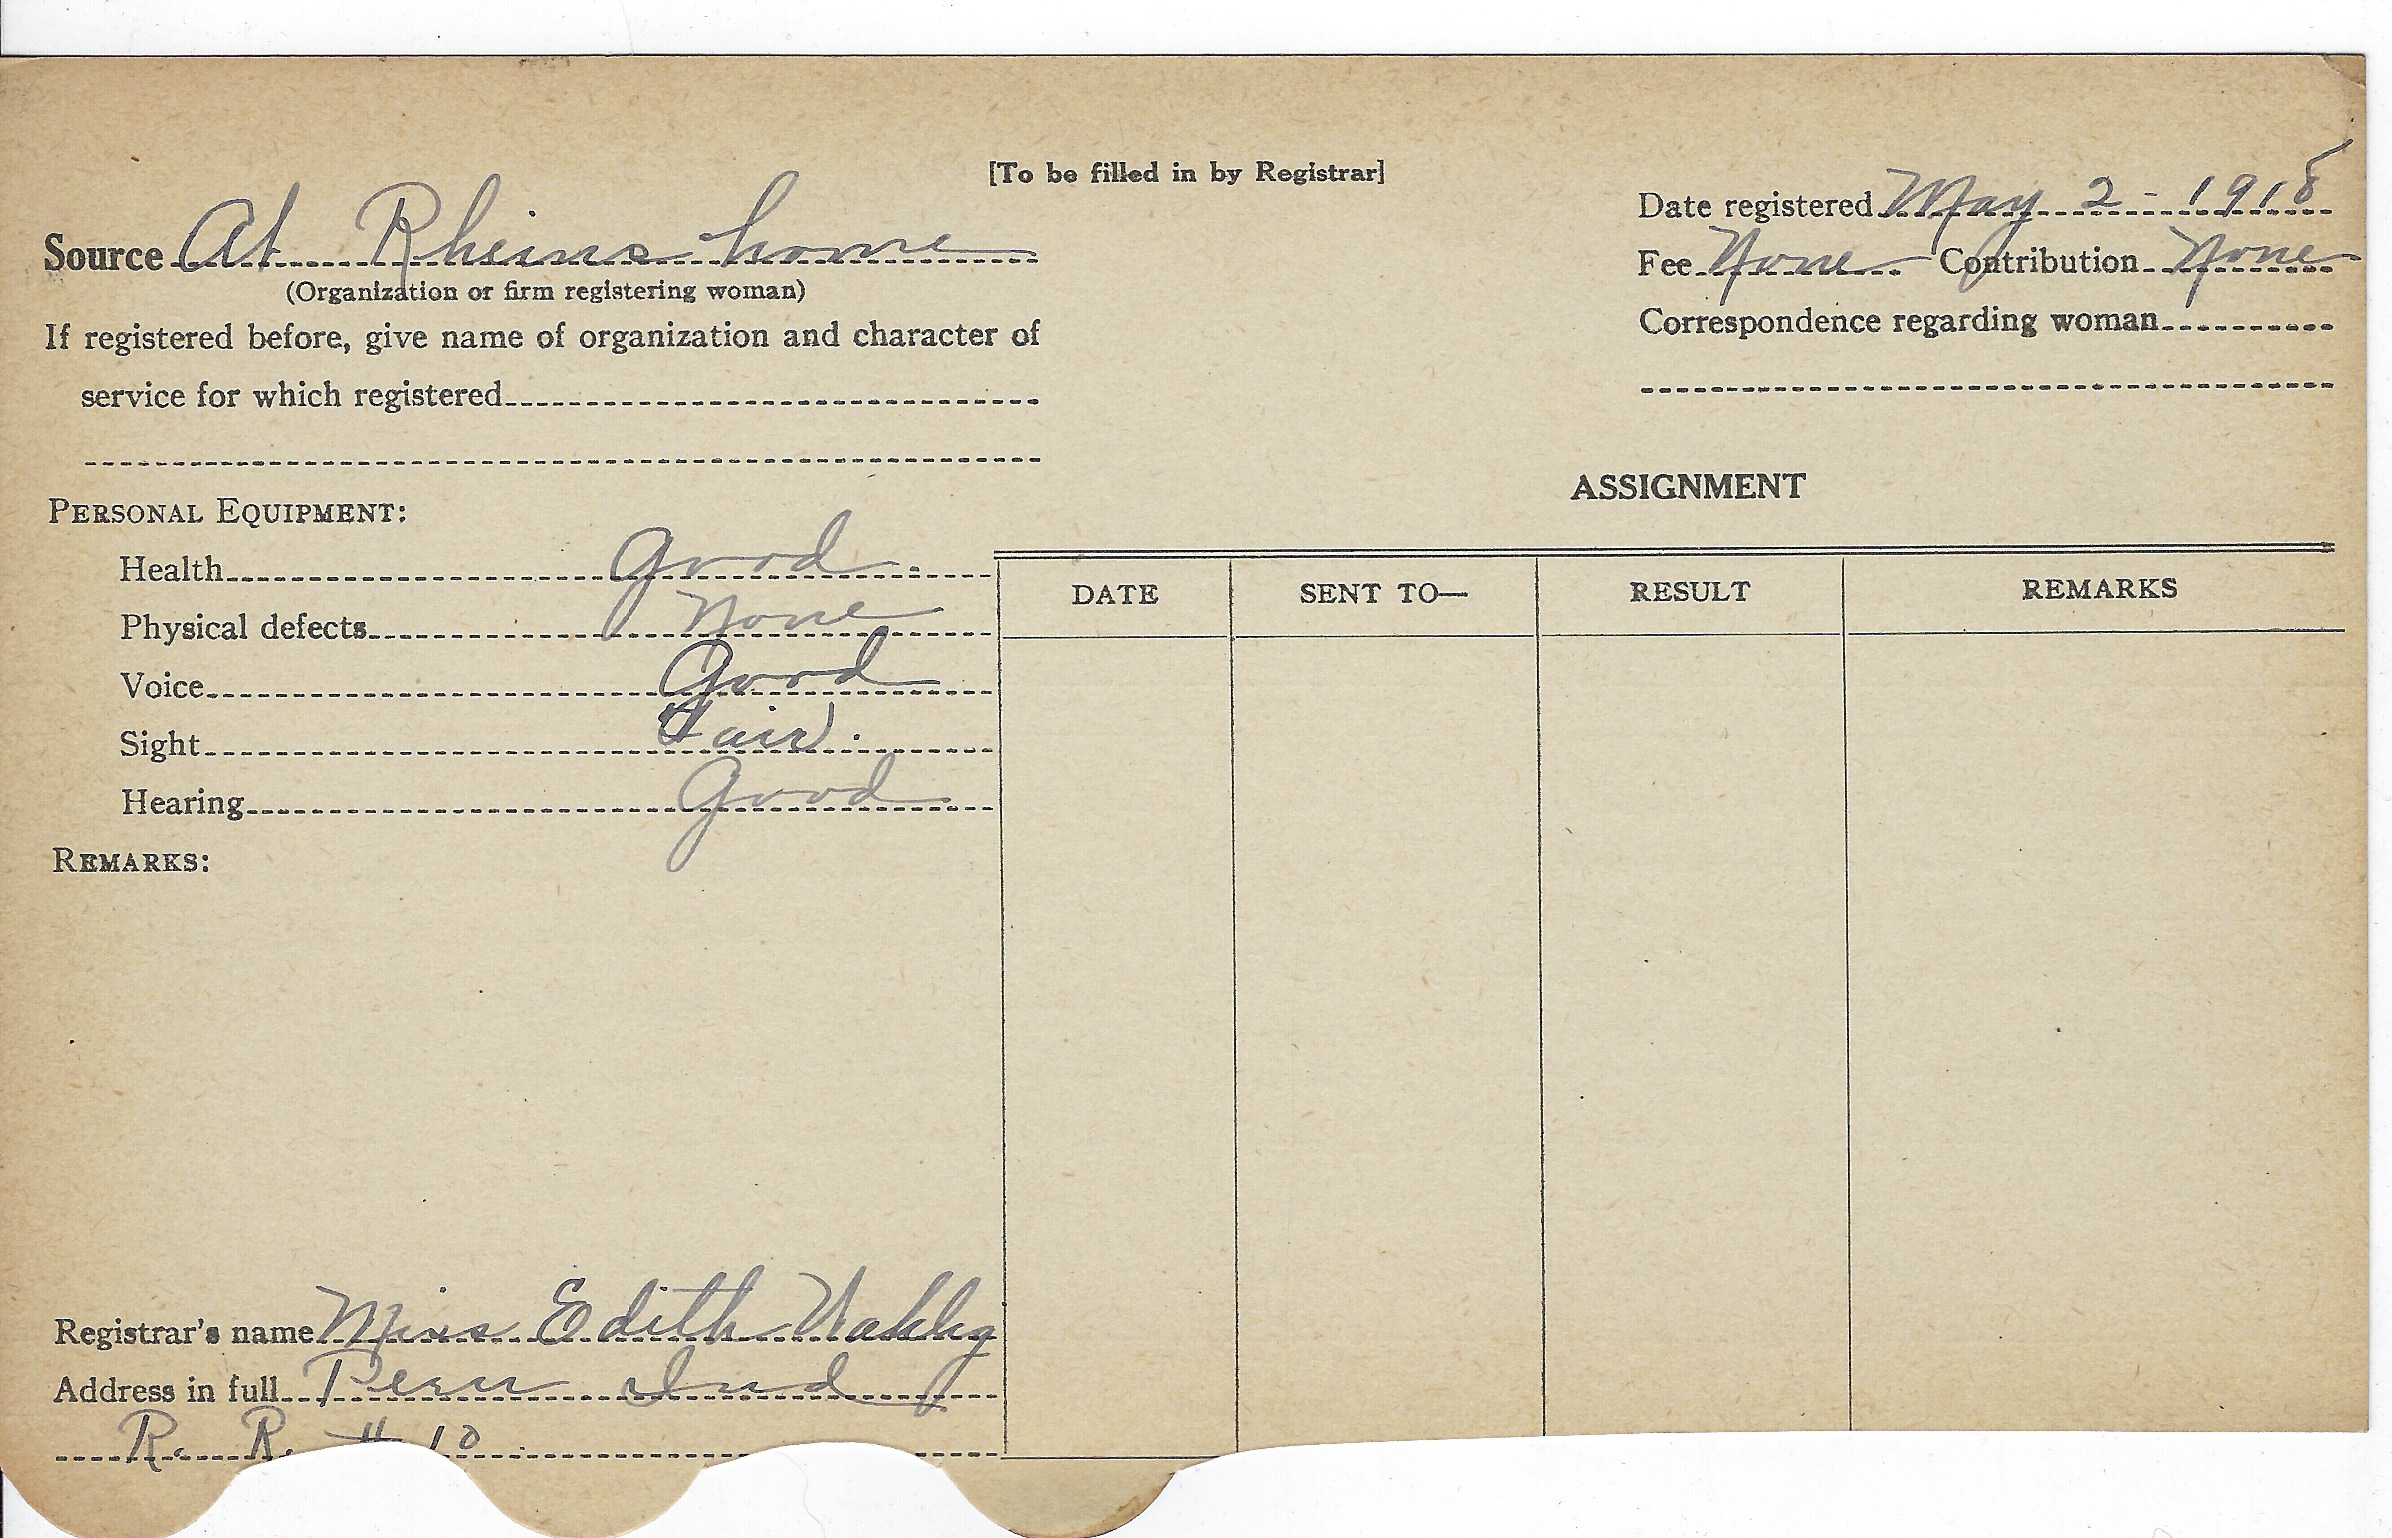 [To be filled in by Registrar]
Source At Rheins home
(Organization or firm registering woman)
If registered before, give name of organization and character of
service for which registered
Date registered May 2 - 1918
Fee None Contribution None
Correspondence regarding woman
PERSONAL EQUIPMENT:
Health Good
Physical defects None
Voice Good
Sight Fair.
Hearing Good
REMARKS:
ASSIGNMENT
DATE SENT TO— RESULT REMARKS
Registrar's name Miss Edith
Address in full Peru Ind
R. R. # 10